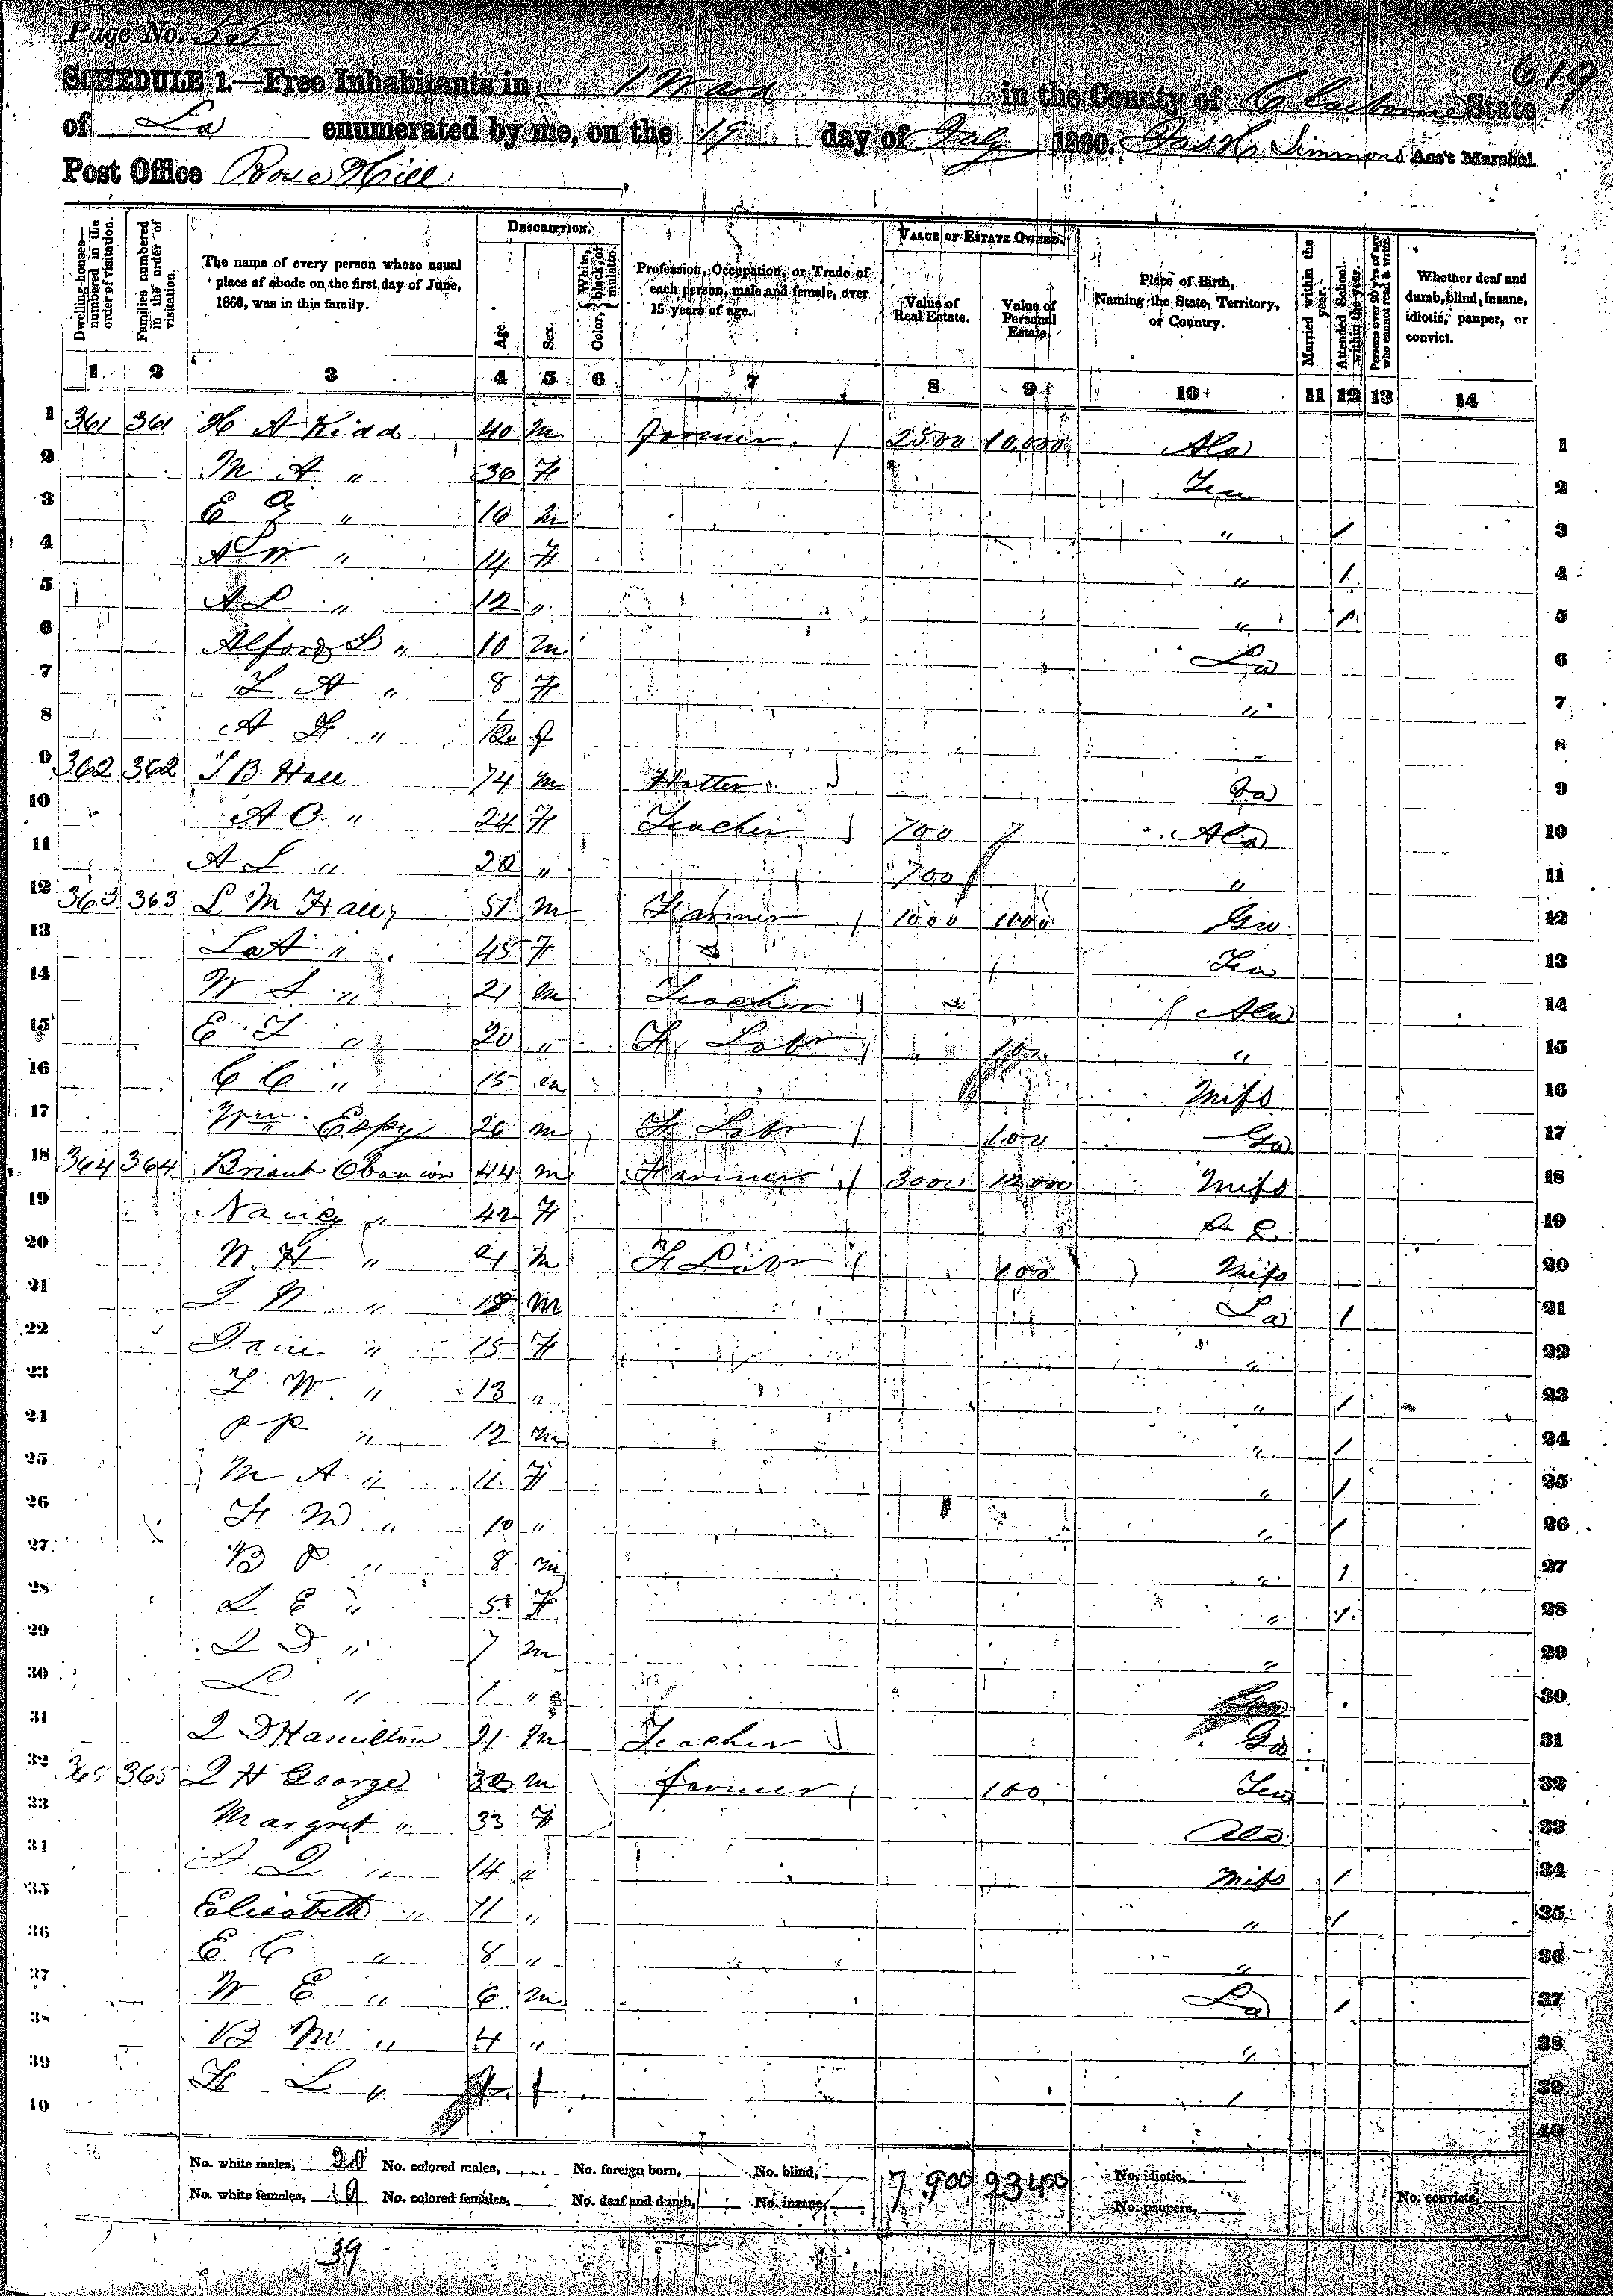 Page No. 55
619
SCHEDULE 1.—Free Inhabitants in 1 Ward in the County of Claiborne State
of La enumerated by me, on the 19 day of July 1860. Jas H Simmons Ass't Marshal.
Post Office Rose Hill
Dwelling-houses—numbered in the order of visitation.
Families numbered in the order of visitation.
The name of every person whose usual place of abode on the first day of June, 1860, was in this family.
DESCRIPTION.
Age.
Sex.
Color, { White, black, or mulatto.
Profession, Occupation, or Trade of each person, male and female, over 15 years of age.
VALUE OF ESTATE OWNED.
Value of Real Estate.
Value of Personal Estate.
Place of Birth, Naming the State, Territory, or Country.
Married within the year.
Attended School within the year.
Persons over 20 y'rs of age who cannot read & write.
Whether deaf and dumb, blind, insane, idiotic, pauper, or convict.
1 2 3 4 5 6 7 8 9 10 11 12 13 14
1 361 361 H A Kidd 40 m farmer 2500 10,000 Ala 1
2 M A " 36 F Ten 2
3 E " 16 m " 1 3
4 A W " 14 F " 1 4
5 A L " 12 " " 1 5
6 Alford L " 10 m La 6
7 L A " 8 F " 7
8 A F " f " 8
9 362 362 J B Hall 74 m Hatter 9
10 A O " 24 F Teacher 700 Ala 10
11 A L " 20 " 700 " 11
12 363 363 L M 51 m Farmer 1000 1000 Geo 12
13 La A " 45 F Ten 13
14 W S " 21 m Teacher Ala 14
15 E T " 20 " F Labr 100 " 15
16 C C " 15 m Miss 16
17 Wm Espy 26 m F Labr 100 Ga 17
18 364 364 Briant Obanion 44 m Farmer 3000 12000 Miss 18
19 Nancy " 42 F S C 19
20 W H " 21 m F Labr 100 Miss 20
21 J W " 18 m La 1 21
22 " 15 F " 22
23 L W " 13 " " 1 23
24 P P " 12 m " 1 24
25 M A " 11 F " 1 25
26 F M " 10 " " 1 26
27 B P " 8 m " 1 27
28 L E " 5 F " 1 28
29 J D " 7 m " 29
30 L " 1 " 30
31 J D Hamilton 21 m Teacher Ga 31
32 365 365 J H George m farmer 100 Ten 32
33 Margret " 33 F Ala 33
34 J " 14 " Miss 1 34
35 Elisabeth " 11 " " 1 35
36 E C " 8 " " 36
37 W E " 6 m La 1 37
38 B M " 4 " " 38
39 F L " f 39
40 40
No. white males, 20 No. colored males, No. foreign born, No. blind, 7 900 23400 No. idiotic,
No. white females, 19 No. colored females, No. deaf and dumb, No. insane, No. paupers, No. convicts,
39